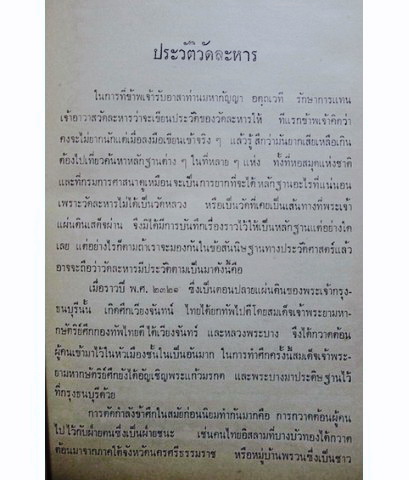 ประวัติวัดละหาร
ในการที่ข้าพเจ้ารับอาสาท่านมหากัญญา อคฺคเวที รักษาการแทน
เจ้าอาวาสวัดละหารว่าจะเขียนประวัติของวัดละหารให้ ทีแรกข้าพเจ้าคิดว่า
คงจะไม่ยากนักแต่เมื่อลงมือเขียนเข้าจริง ๆ แล้วรู้สึกว่ามันยากเสียเหลือเกิน
ต้องไปเที่ยวค้นหาหลักฐานต่าง ๆ ในที่หลาย ๆ แห่ง ทั้งที่หอสมุดแห่งชาติ
และที่กรมการศาสนาดูเหมือนจะเป็นการยากที่จะได้หลักฐานอะไรที่แน่นอน
เพราะวัดละหารไม่ได้เป็นวัดหลวง หรือเป็นวัดที่เคยเป็นเส้นทางที่พระเจ้า
แผ่นดินเสด็จผ่าน จึงมิได้มีการบันทึกเรื่องราวไว้ให้เป็นหลักฐานแต่อย่างใด
เลย แต่อย่างไรก็ตามถ้าเราจะมองกันในข้อสันนิษฐานทางประวัติศาสตร์แล้ว
อาจจะถือว่าวัดละหารมีประวัติตามเป็นมาดังนี้คือ
เมื่อราวปี พ.ศ. ๒๓๒๑ ซึ่งเป็นตอนปลายแผ่นดินของพระเจ้ากรุง-
ธนบุรีนั้น เกิดศึกเวียงจันทน์ ไทยได้ยกทัพไปตีโดยสมเด็จเจ้าพระยามหา-
กษัตริย์ศึกกองทัพไทยตีได้เวียงจันทร์ และหลวงพระบาง จึงได้กวาดต้อน
ผู้คนเข้ามาไว้ในหัวเมืองชั้นในเป็นอันมาก ในการทำศึกครั้งนี้สมเด็จเจ้าพระ-
ยามหากษัตริย์ศึกยังได้อัญเชิญพระแก้วมรกต และพระบางมาประดิษฐานไว้
ที่กรุงธนบุรีด้วย
การตัดกำลังข้าศึกในสมัยก่อนนิยมทำกันมากคือ การกวาดต้อนผู้คน
ไปไว้กับฝ่ายตนซึ่งเป็นฝ่ายชนะ เช่นคนไทยอิสลามที่บางบัวทองได้กวาด
ต้อนมาจากภาคใต้จังหวัดนครศรีธรรมราช หรือหมู่บ้านพรวนซึ่งเป็นชาว